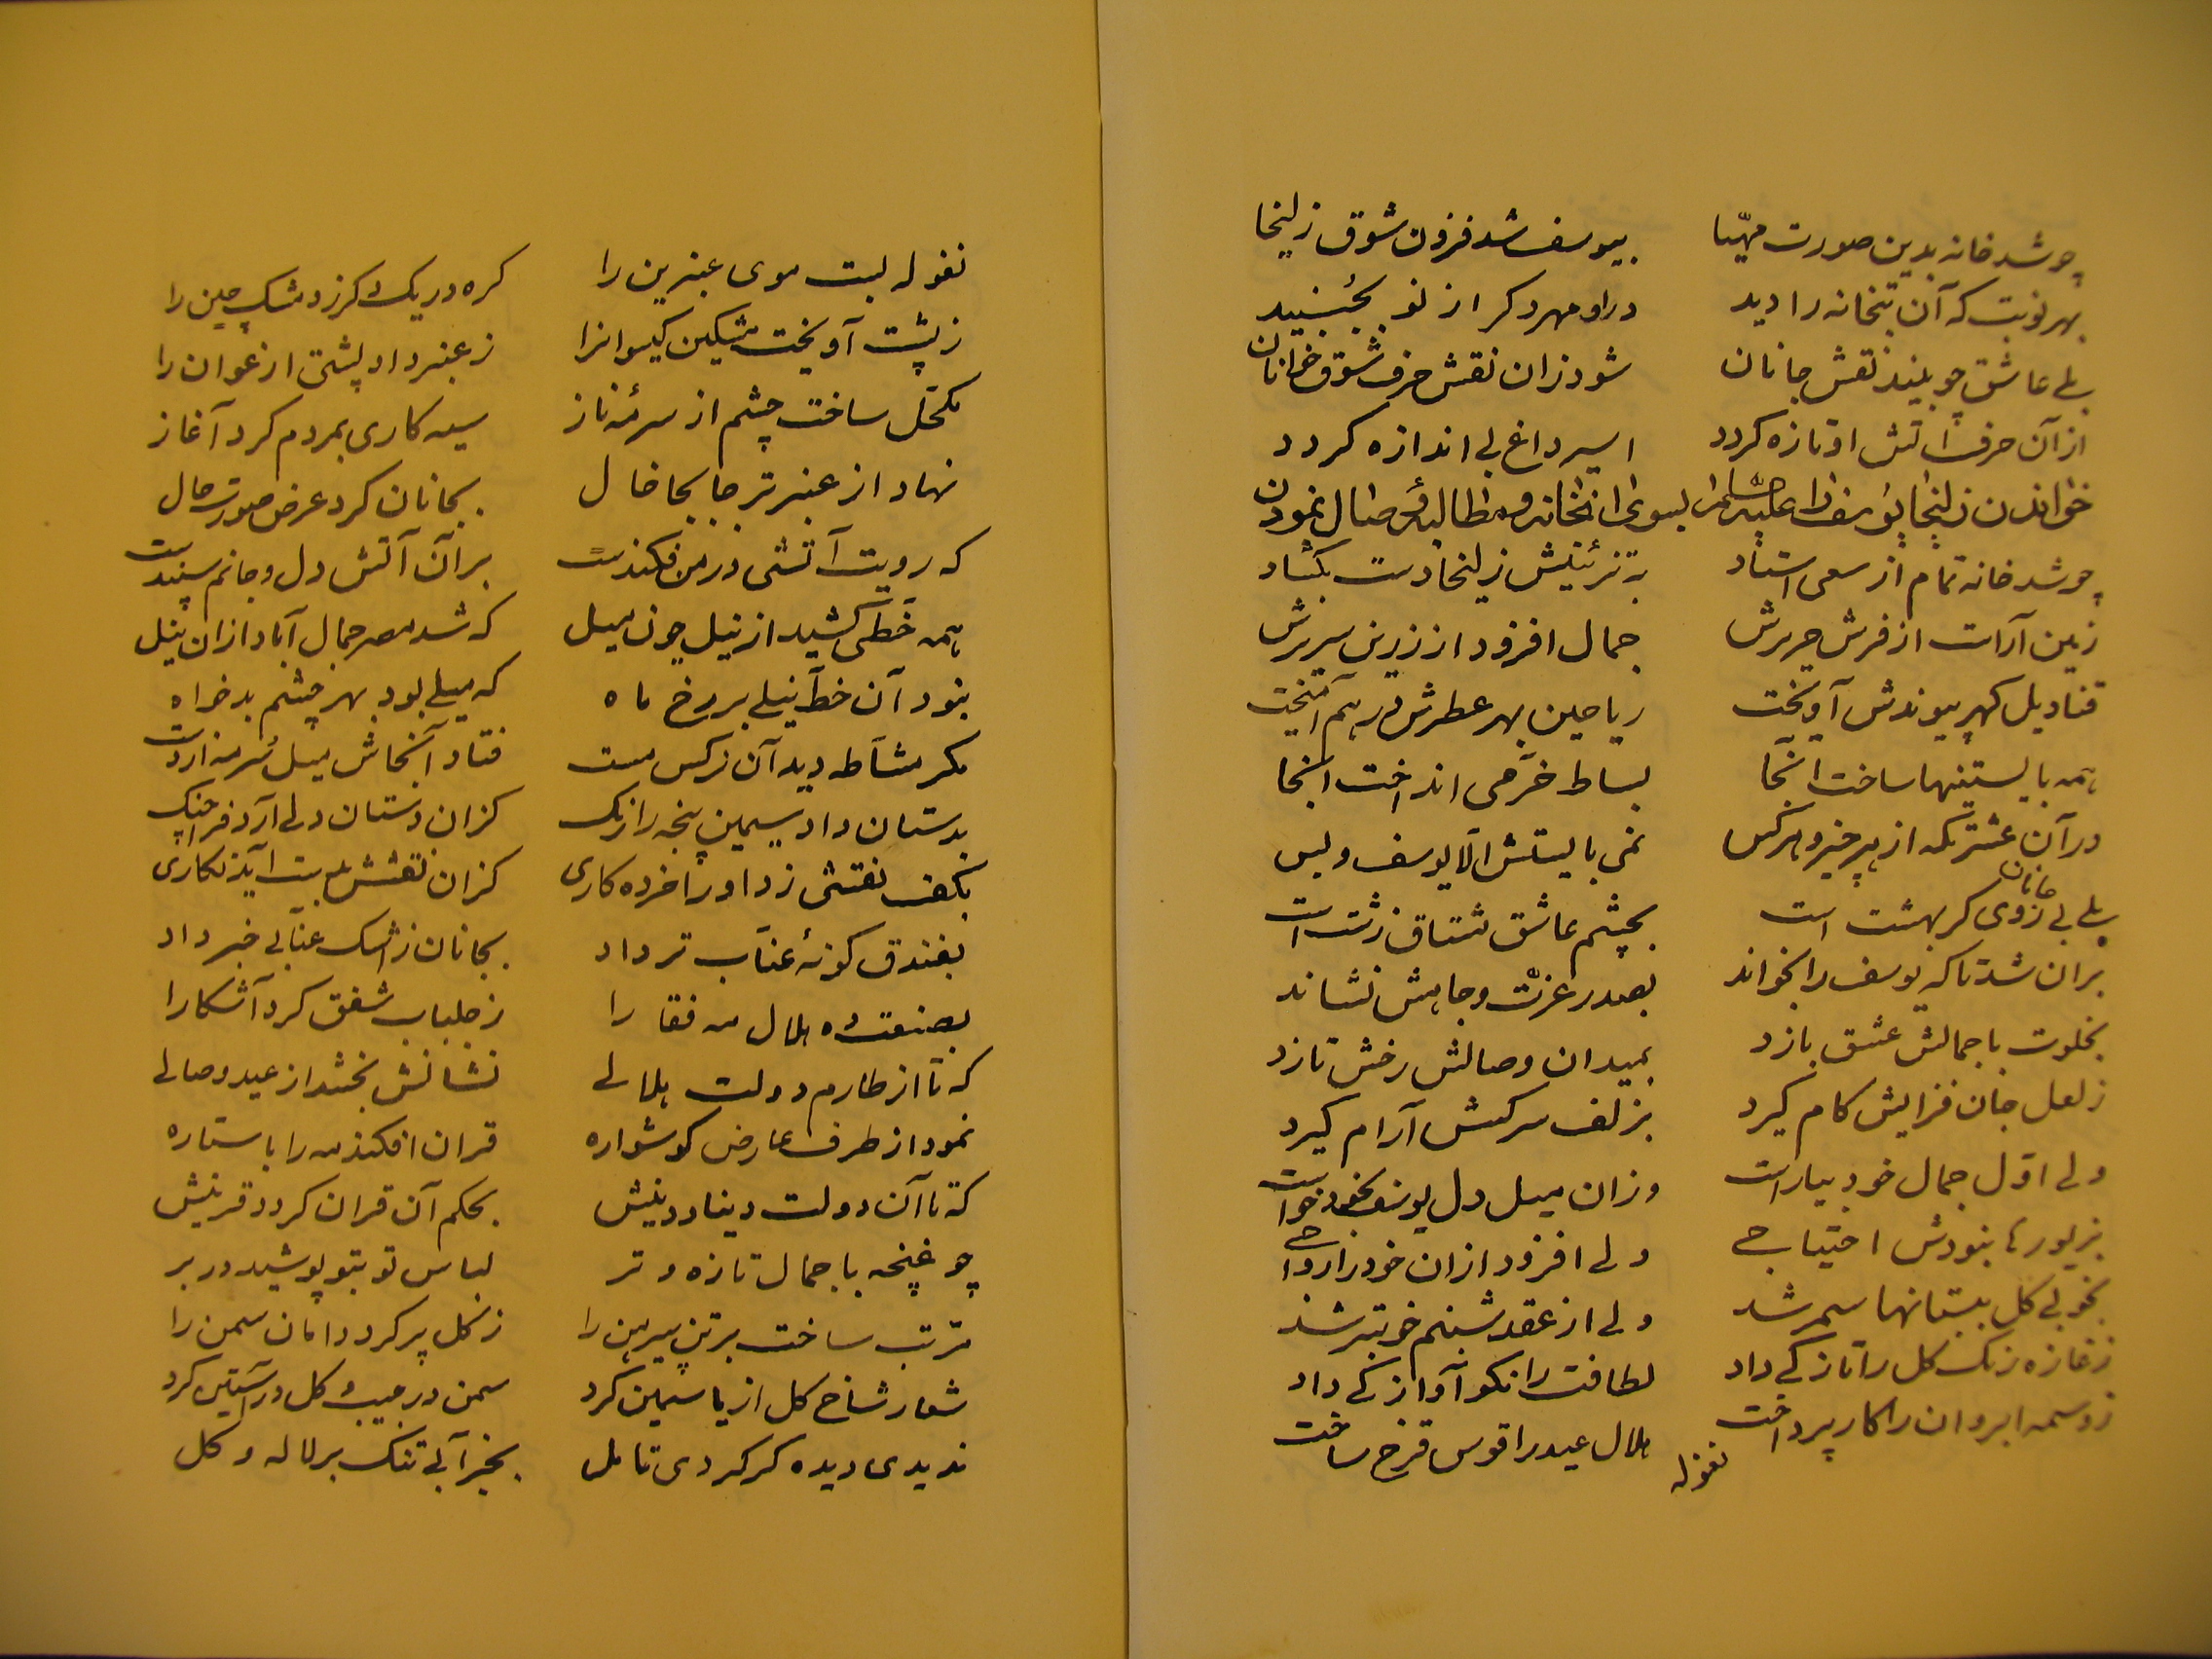 چو شد خانه بدین صورت مهیّا بیوسف شد فزون شوق زلیخا
بهر نوبت که آن بتخانه را دید درا و مهر دکر از نو بجنبید
بلے عاشق چو بیند نقش جانان شود زان نقش حرف شوق خوانان
از آن حرف اتش او تازه کردد اسیر داغ بی اندازه کردد
خواندن زلیخا یوسف را علیه السلام بسوی انخانه و مطالبۀ وصال نمودن
چو شد خانه تمام از سعی استاد به تزئینش زلیخا دست بکشاد
زمین آراست از فرش حریرش جمال افزود از زرین سریرش
قنادیل کهر پیوندش آویخت ریاحین بهر عطرش در هم آمیخت
همه بایستنیها ساخت آنجا بساط خرّمی انداخت انجا
در آن عشرتکه از هر چیز و هر کس نمی بایستش الّا یوسف و بس
بلے بی روی جانان کر بهشت است بچشم عاشق مشتاق زشت است
بران شد تا که یوسف را بخواند بصدر عزّت و جاهش نشاند
بخلوت با جمالش عشق بازد بمیدان وصالش رخش تازد
ز لعل جان فزایش کام کیرد بزلف سرکش آرام کیرد
ولے اوّل جمال خود بیاراست وزان میل دل یوسف بخود خواست
بزیورها نبودش احتیاجے ولے افزود ازان خود را رواجے
بخوبی کل ببستانها سمر شد ولے از عقد شبنم خوبتر شد
ز غازه رنک کل را تازکے داد لطافت را نکو آوازکے داد
ز وسمه ابروان را کار پرداخت هلال عید را قوس قزح ساخت
نغوله
نغوله بست موی عنبرین را کره در یک دکر زد مشک چین را
ز پشت آویخت مشکین کیسوانرا ز عنبر داد پشتی ارغوان را
مکحّل ساخت چشم از سرمۀ ناز سیه کاری بمردم کرد آغاز
نهاد از عنبر تر جا بجا خال بجانان کرد عرض صورت حال
که رویت آتشی در من فکندست بران آتش دل و جانم سپندست
همه خطی کشید از نیل چون میل که شد مصر جمال آباد ازان نیل
نبود آن خط نیلے بر رخ ماه که میلے بود بهر چشم بدخواه
مکر مشّاطه دید آن نرکس مست فتاد آنجاش میل سرمه از دست
بدستان داد سیمین پنجه را رنک کزان دستان دلے آرد فراچنک
بکف نقشی زد او را خرده کاری کزان نقشش بدست آید نکاری
بفندق کونۀ عنّاب تر داد بجانان ز اشک عنّابی خبر داد
بصنعت ده هلال مه فقا را ز جلباب شفق کرد آشکارا
که تا از طارم دولت هلالے نشانش بخشد از عید وصالے
نمود از طرف عارض کوشواره قران افکند مه را با ستاره
که تا آن دولت دنیا و دینش بحکم آن قران کردد قرینش
چو غنچه با جمال تازه و تر لباس تو بتو پوشید در بر
مرتب ساخت بر تن پیرهن را ز کل پر کرد دامان سمن را
شعار شاخ کل از یاسمین کرد سمن در جیب و کل در آستین کرد
ندیدی دیده کر کردی تامل بخز آبی تنک بر لاله و کل